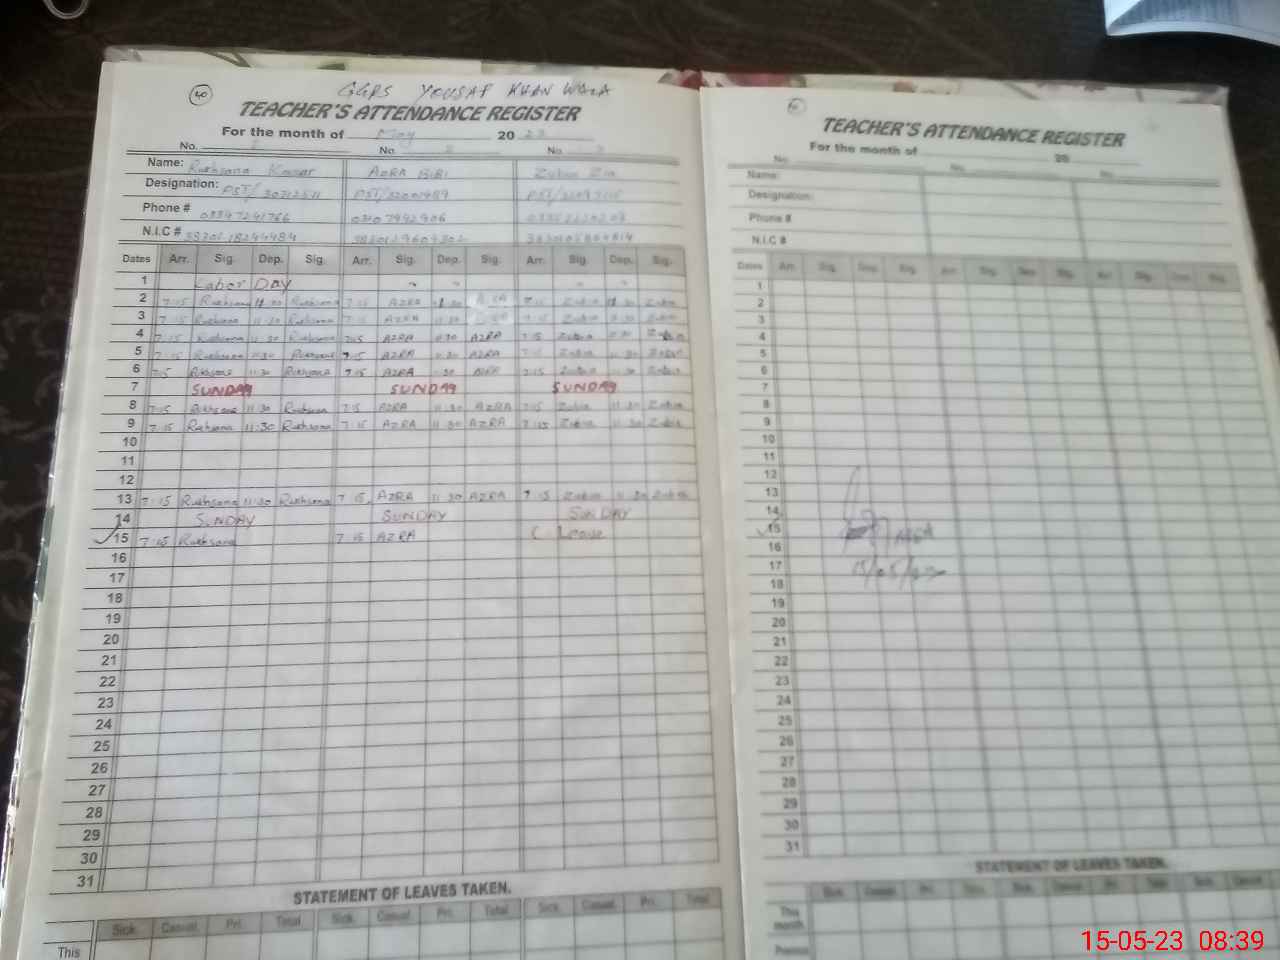 40
GGPS YOUSAF KHAN WALA
TEACHER'S ATTENDANCE REGISTER
For the month of May 2023
No. 1 No 2 No. 3
Name: Rukhsana Kausar AZRA BIBI Zubia Zia
Designation: PST/ PST/32001489 PST/
Phone # 03347241766 03107992906
N.I.C #
Dates Arr. Sig. Dep. Sig. Arr. Sig. Dep. Sig. Arr. Sig. Dep. Sig.
1 Labor DAY " " " "
2 7:15 Rukhsana 11:30 Rukhsana 7:15 AZRA 11:30 AZRA 7:15 Zubia 11:30 Zubia
3 7:15 Rukhsana 11:30 Rukhsana 7:15 AZRA 11:30 7:15 Zubia 11:30 Zubia
4 7:15 Rukhsana 11:30 Rukhsana 7:15 AZRA 11:30 AZRA 7:15 Zubia 11:30 Zubia
5 7:15 Rukhsana 11:30 Rukhsana 7:15 AZRA 11:30 AZRA 7:15 Zubia 11:30 Zubia
6 7:15 Rukhsana 11:30 Rukhsana 7:15 AZRA 11:30 AZRA 7:15 Zubia 11:30 Zubia
7 SUNDAY SUNDAY SUNDAY
8 7:15 Rukhsana 11:30 Rukhsana 7:15 AZRA 11:30 AZRA 7:15 Zubia 11:30 Zubia
9 7:15 Rukhsana 11:30 Rukhsana 7:15 AZRA 11:30 AZRA 7:15 Zubia 11:30 Zubia
10
11
12
13 7:15 Rukhsana 11:30 Rukhsana 7:15 AZRA 11:30 AZRA 7:15 Zubia 11:30 Zubia
14 SUNDAY SUNDAY SUNDAY
15 7:15 Rukhsana 7:15 AZRA C. Leave
16
17
18
19
20
21
22
23
24
25
26
27
28
29
30
31
STATEMENT OF LEAVES TAKEN.
Sick. Casual. Pri. Total Sick. Casual. Pri. Total Sick. Casual. Pri. Total
This
TEACHER'S ATTENDANCE REGISTER
For the month of 20
No. No. No.
Name:
Designation:
Phone #
N.I.C #
Dates Arr. Sig. Dep. Sig. Arr. Sig. Dep. Sig. Arr. Sig. Dep. Sig.
1
2
3
4
5
6
7
8
9
10
11
12
13
14
15
16
17
18
19
20
21
22
23
24
25
26
27
28
29
30
31
15/05/23
STATEMENT OF LEAVES TAKEN.
Sick. Casual. Pri. Total Sick. Casual. Pri. Total Sick. Casual.
This
month.
15-05-23 08:39